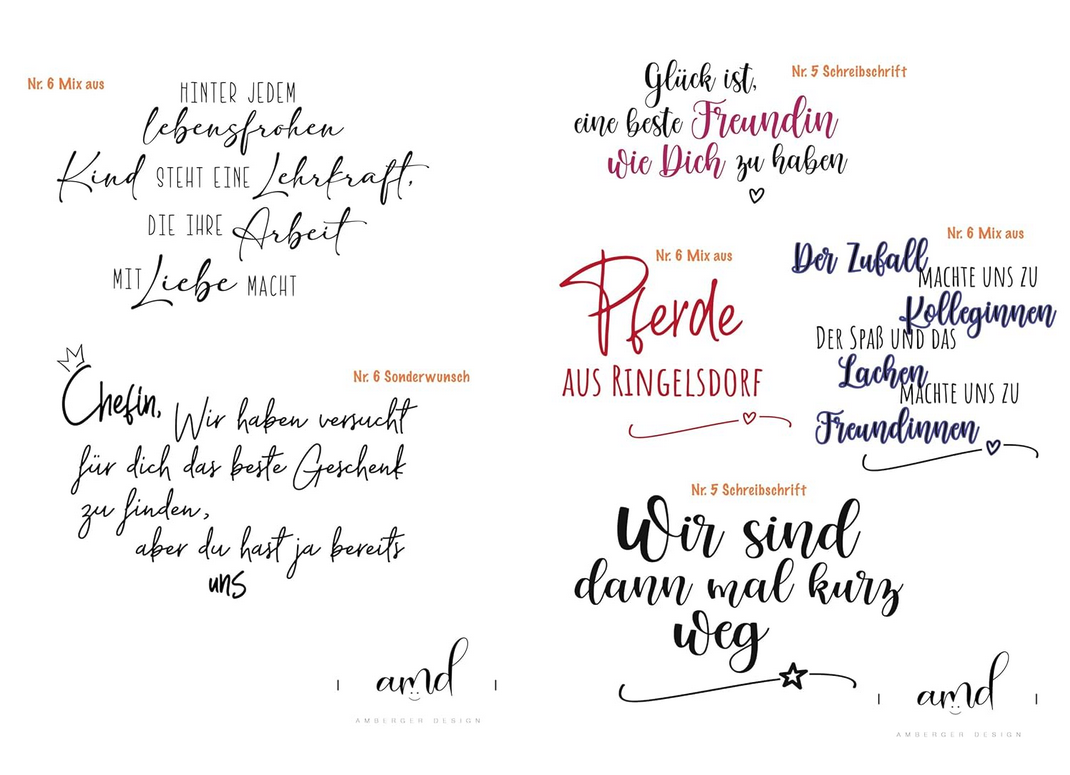 Nr. 6 Mix aus
HINTER JEDEM
lebensfrohen
Kind STEHT EINE Lehrkraft,
DIE IHRE Arbeit
MIT Liebe MACHT
Nr. 6 Sonderwunsch
Chefin, Wir haben versucht
für dich das beste Geschenk
zu finden,
aber du hast ja bereits
uns
amd
AMBERGER DESIGN
Nr. 5 Schreibschrift
Glück ist,
eine beste Freundin
wie Dich zu haben
Nr. 6 Mix aus
Pferde
AUS RINGELSDORF
Nr. 6 Mix aus
Der Zufall
MACHTE UNS ZU
Kolleginnen
DER SPAß UND DAS
Lachen
MACHTE UNS ZU
Freundinnen
Nr. 5 Schreibschrift
Wir sind
dann mal kurz
weg
amd
AMBERGER DESIGN